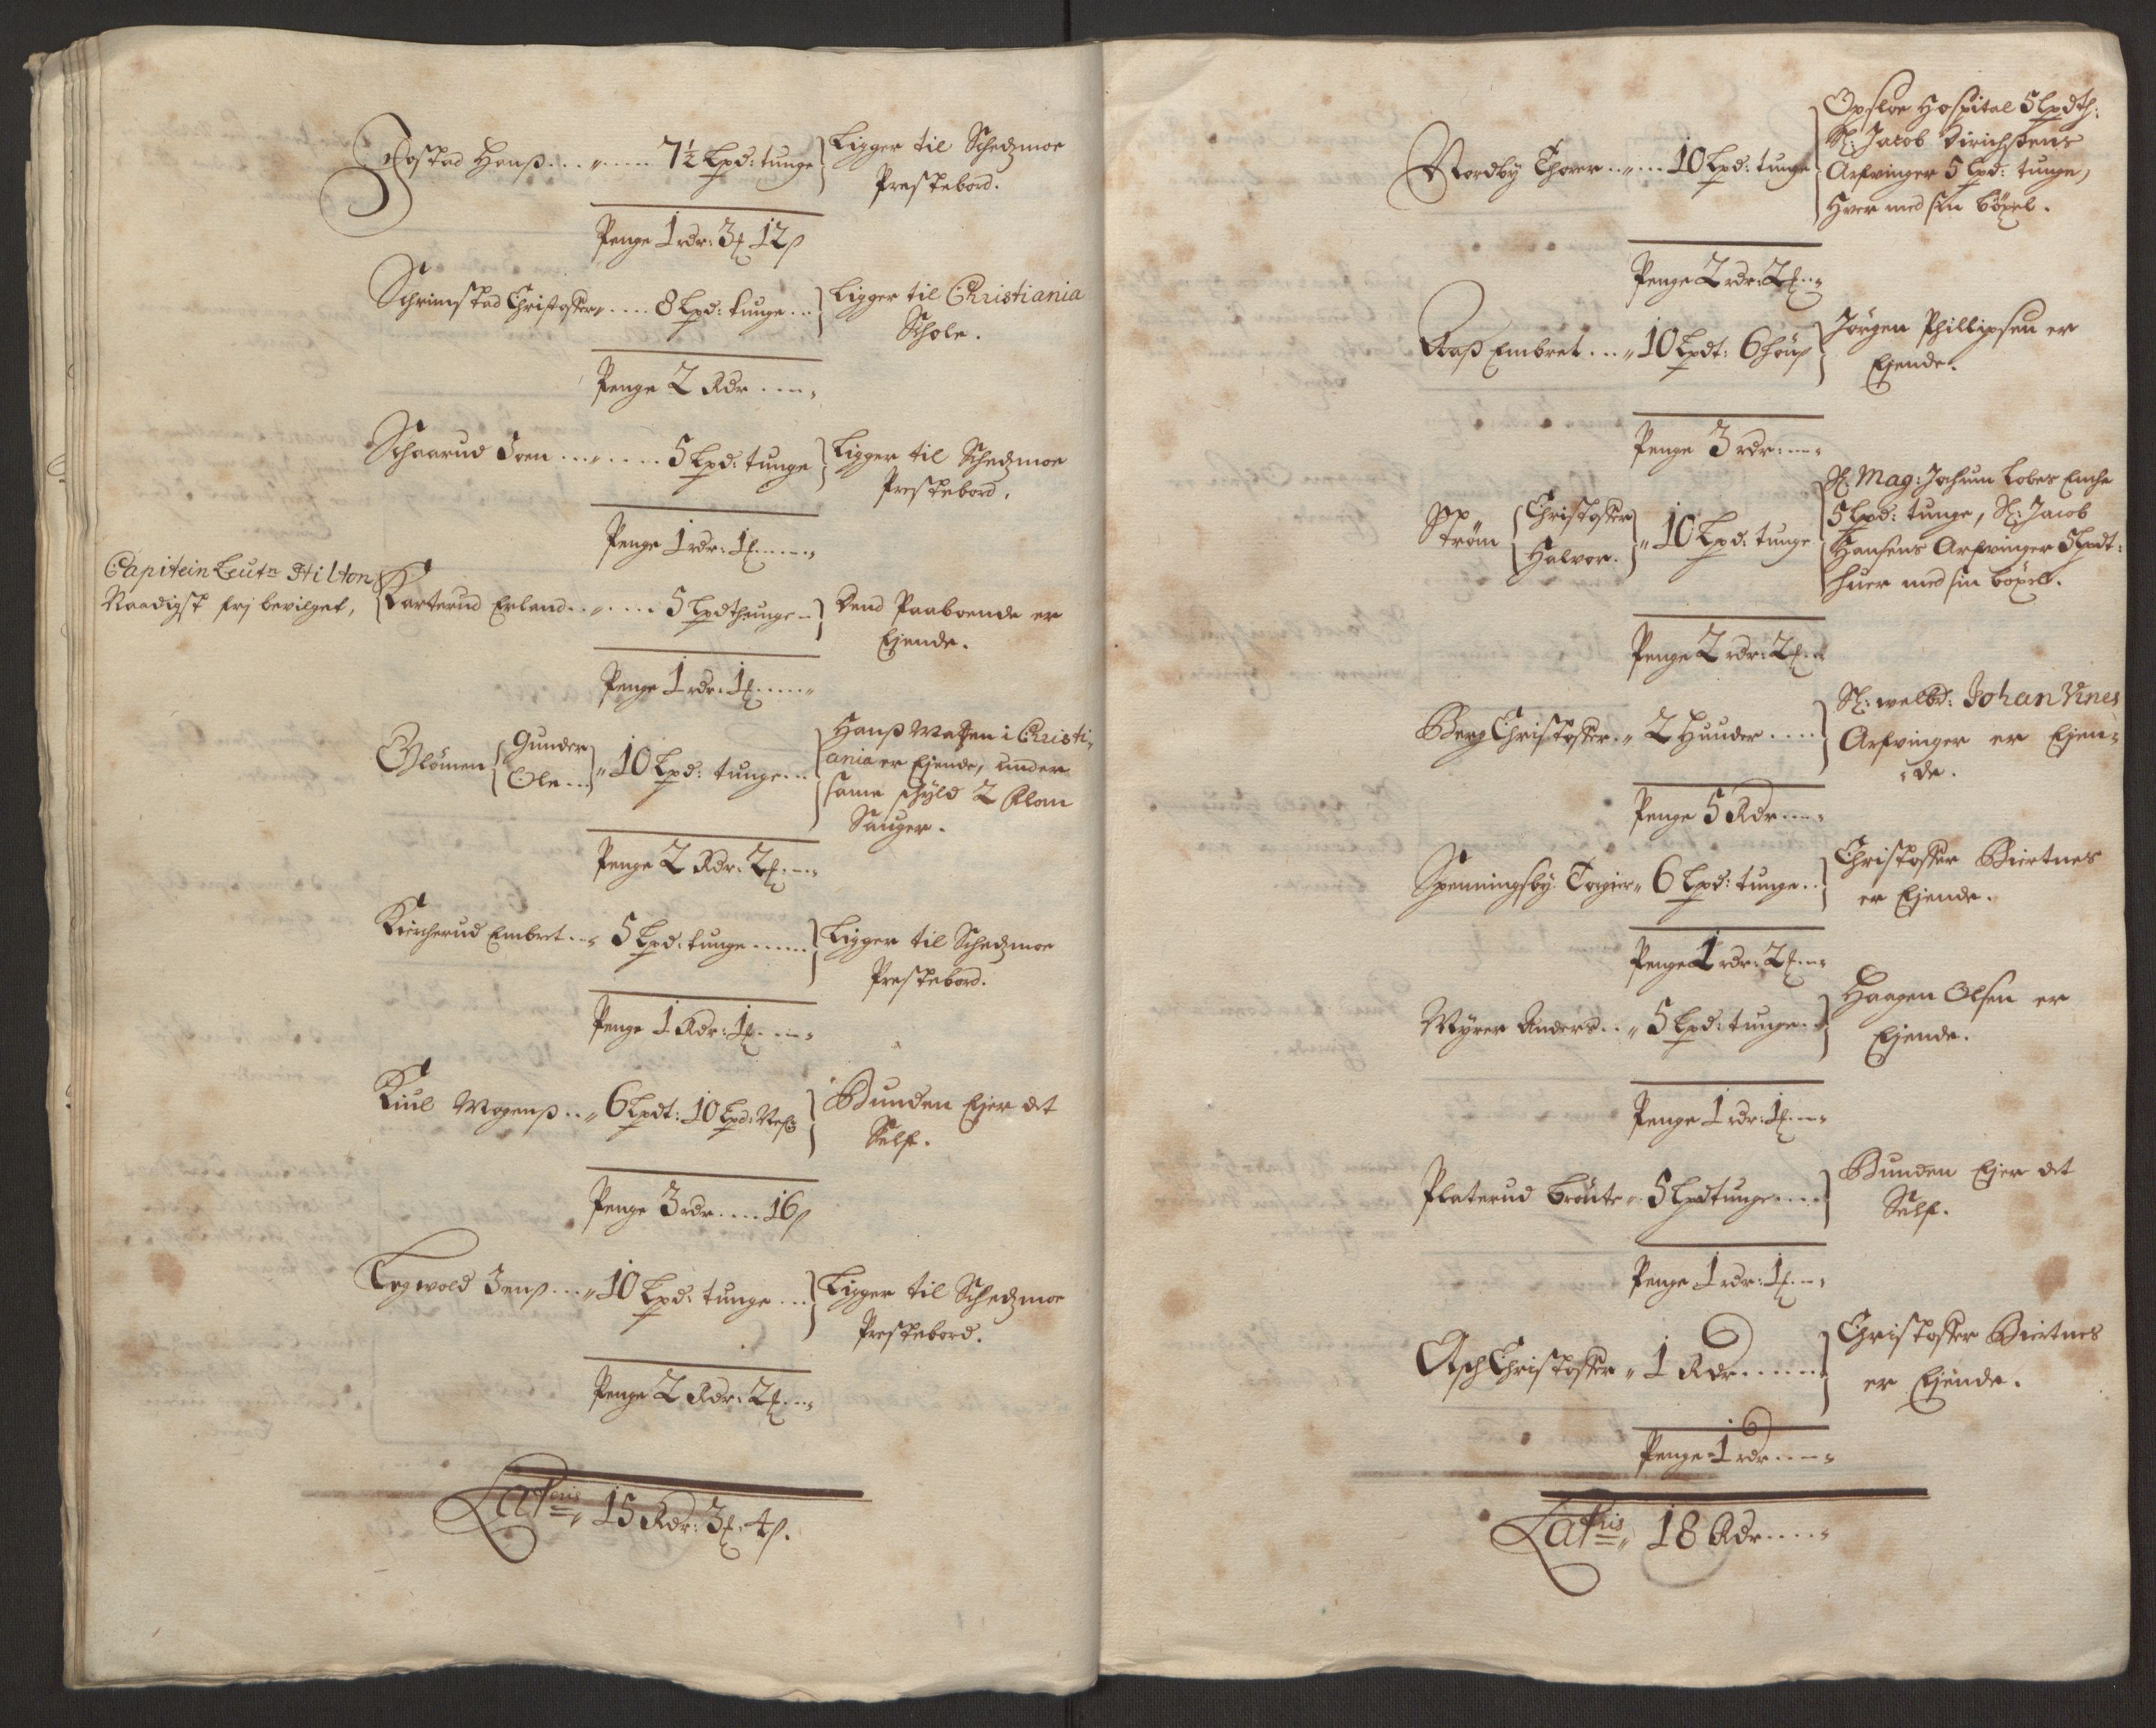 Jostad Hanß . . . „ . . . . . 7½ Lpd: tunge } Ligger til Schedzmoe
Prestebord.
Penge 1 rdr: 3 ƒ 12 ß
Schrimstad Christoffer „ . . . . 8 Lpd: tunge . . } Ligger til Christiania
Schole.
Penge 2 Rdr . . - - „
Schaarud Joen . . . „ . . . . 5 Lpd: tunge } Ligger til Schedzmoe
Prestebord.
Penge 1 rdr: 1 ƒ . . - - - „
Capitein Leutn Hilton
Naadigst frj bevilget, { Karterud Erland . . „ . . . . 5 Lpdtunge . . } Dend Paaboende er
Ejende.
Penge 1 rdr: 1 ƒ . . . . . „
Glomen { Gunder
Ole . . . } „ 10 Lpd: tunge . . . { Hanß Matzen i Christi-
ania er Ejende, under
same schyld 2 Flom
Sauger.
Penge 2 Rdr: 2 ƒ . - - „
Kircherud Embret . . „ 5 Lpd: tunge . . . . . . } Ligger til Schedzmoe
Prestebord.
Penge 1 Rdr: 1 ƒ . . - - „
Kiul Mogenß . . „ 6 Lpdt: 10 Lpd: } Bunden Ejer det
Self.
Penge 3 rdr . . . . 16 ß
Legwold Jenß . . . „ 10 Lpd: tunge . . . } Ligger til Schedzmoe
Prestebord.
Penge 2 Rdr: 2 ƒ . - - „
Lateris „ 15 Rdr: 3 ƒ. 4 ß.
Nordby Thorer . . „ . . . 10 Lpd: tunge { Opsloe Hospital 5 Lpdth:
Sl: Jacob Dirichsens
Arfvinger 5 Lpd: tunge,
Hver med sin böxel.
Penge 2 rdr: 2 ƒ . - „
Aaß Embret . . . „ 10 Lpdt: 6 { Jörgen Phillipsen er
Ejende.
Penge 3 rdr: - - - „
Ström { Christoffer
Halvor. } „ 10 Lpd: tunge { Sl: Mag: Jochum Lobes Enche
5 Lpd: tunge, Sl: Jacob
Hansens Arfvinger 5 Lpdt:
huer med sin böxel.
Penge 2 rdr: 2 ƒ . - „
Berg Christoffer . „ 2 Hunder . . . . } Sl: welbd: Johan Vines
Arfvinger er Ejen-
de.
Penge 5 Rdr - - - „
Spenningsby Torgier „ 6 Lpd: tunge . . { Christoffer Biertnes
er Ejende.
Penge 1 rdr: 2 ƒ . - - „
Myrer Anders . . „ 5 Lpd: tunge . . } Haagen Olsen er
Ejende.
Penge 1 rdr: 1 ƒ . - - „
Platerud Broute „ 5 Lpdtunge . . . . } Bunden Ejer det
Self.
Penge 1 rdr: 1 ƒ . - - „
Asch Christoffer „ 1 Rdr . . . . . . } Christoffer Biertnes
er Ejende.
Penge 1 rdr - - - „
Lateris „ 18 Rdr - - - „